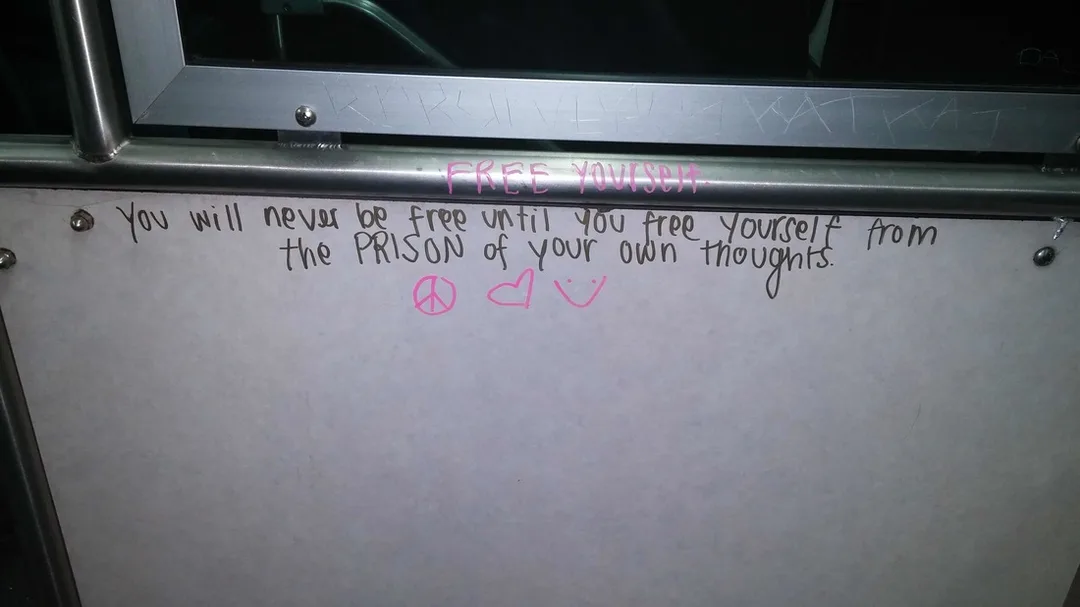 KAT KAT
FREE Yourself
You will never be free until you free yourself from
the PRISON of your own thoughts.